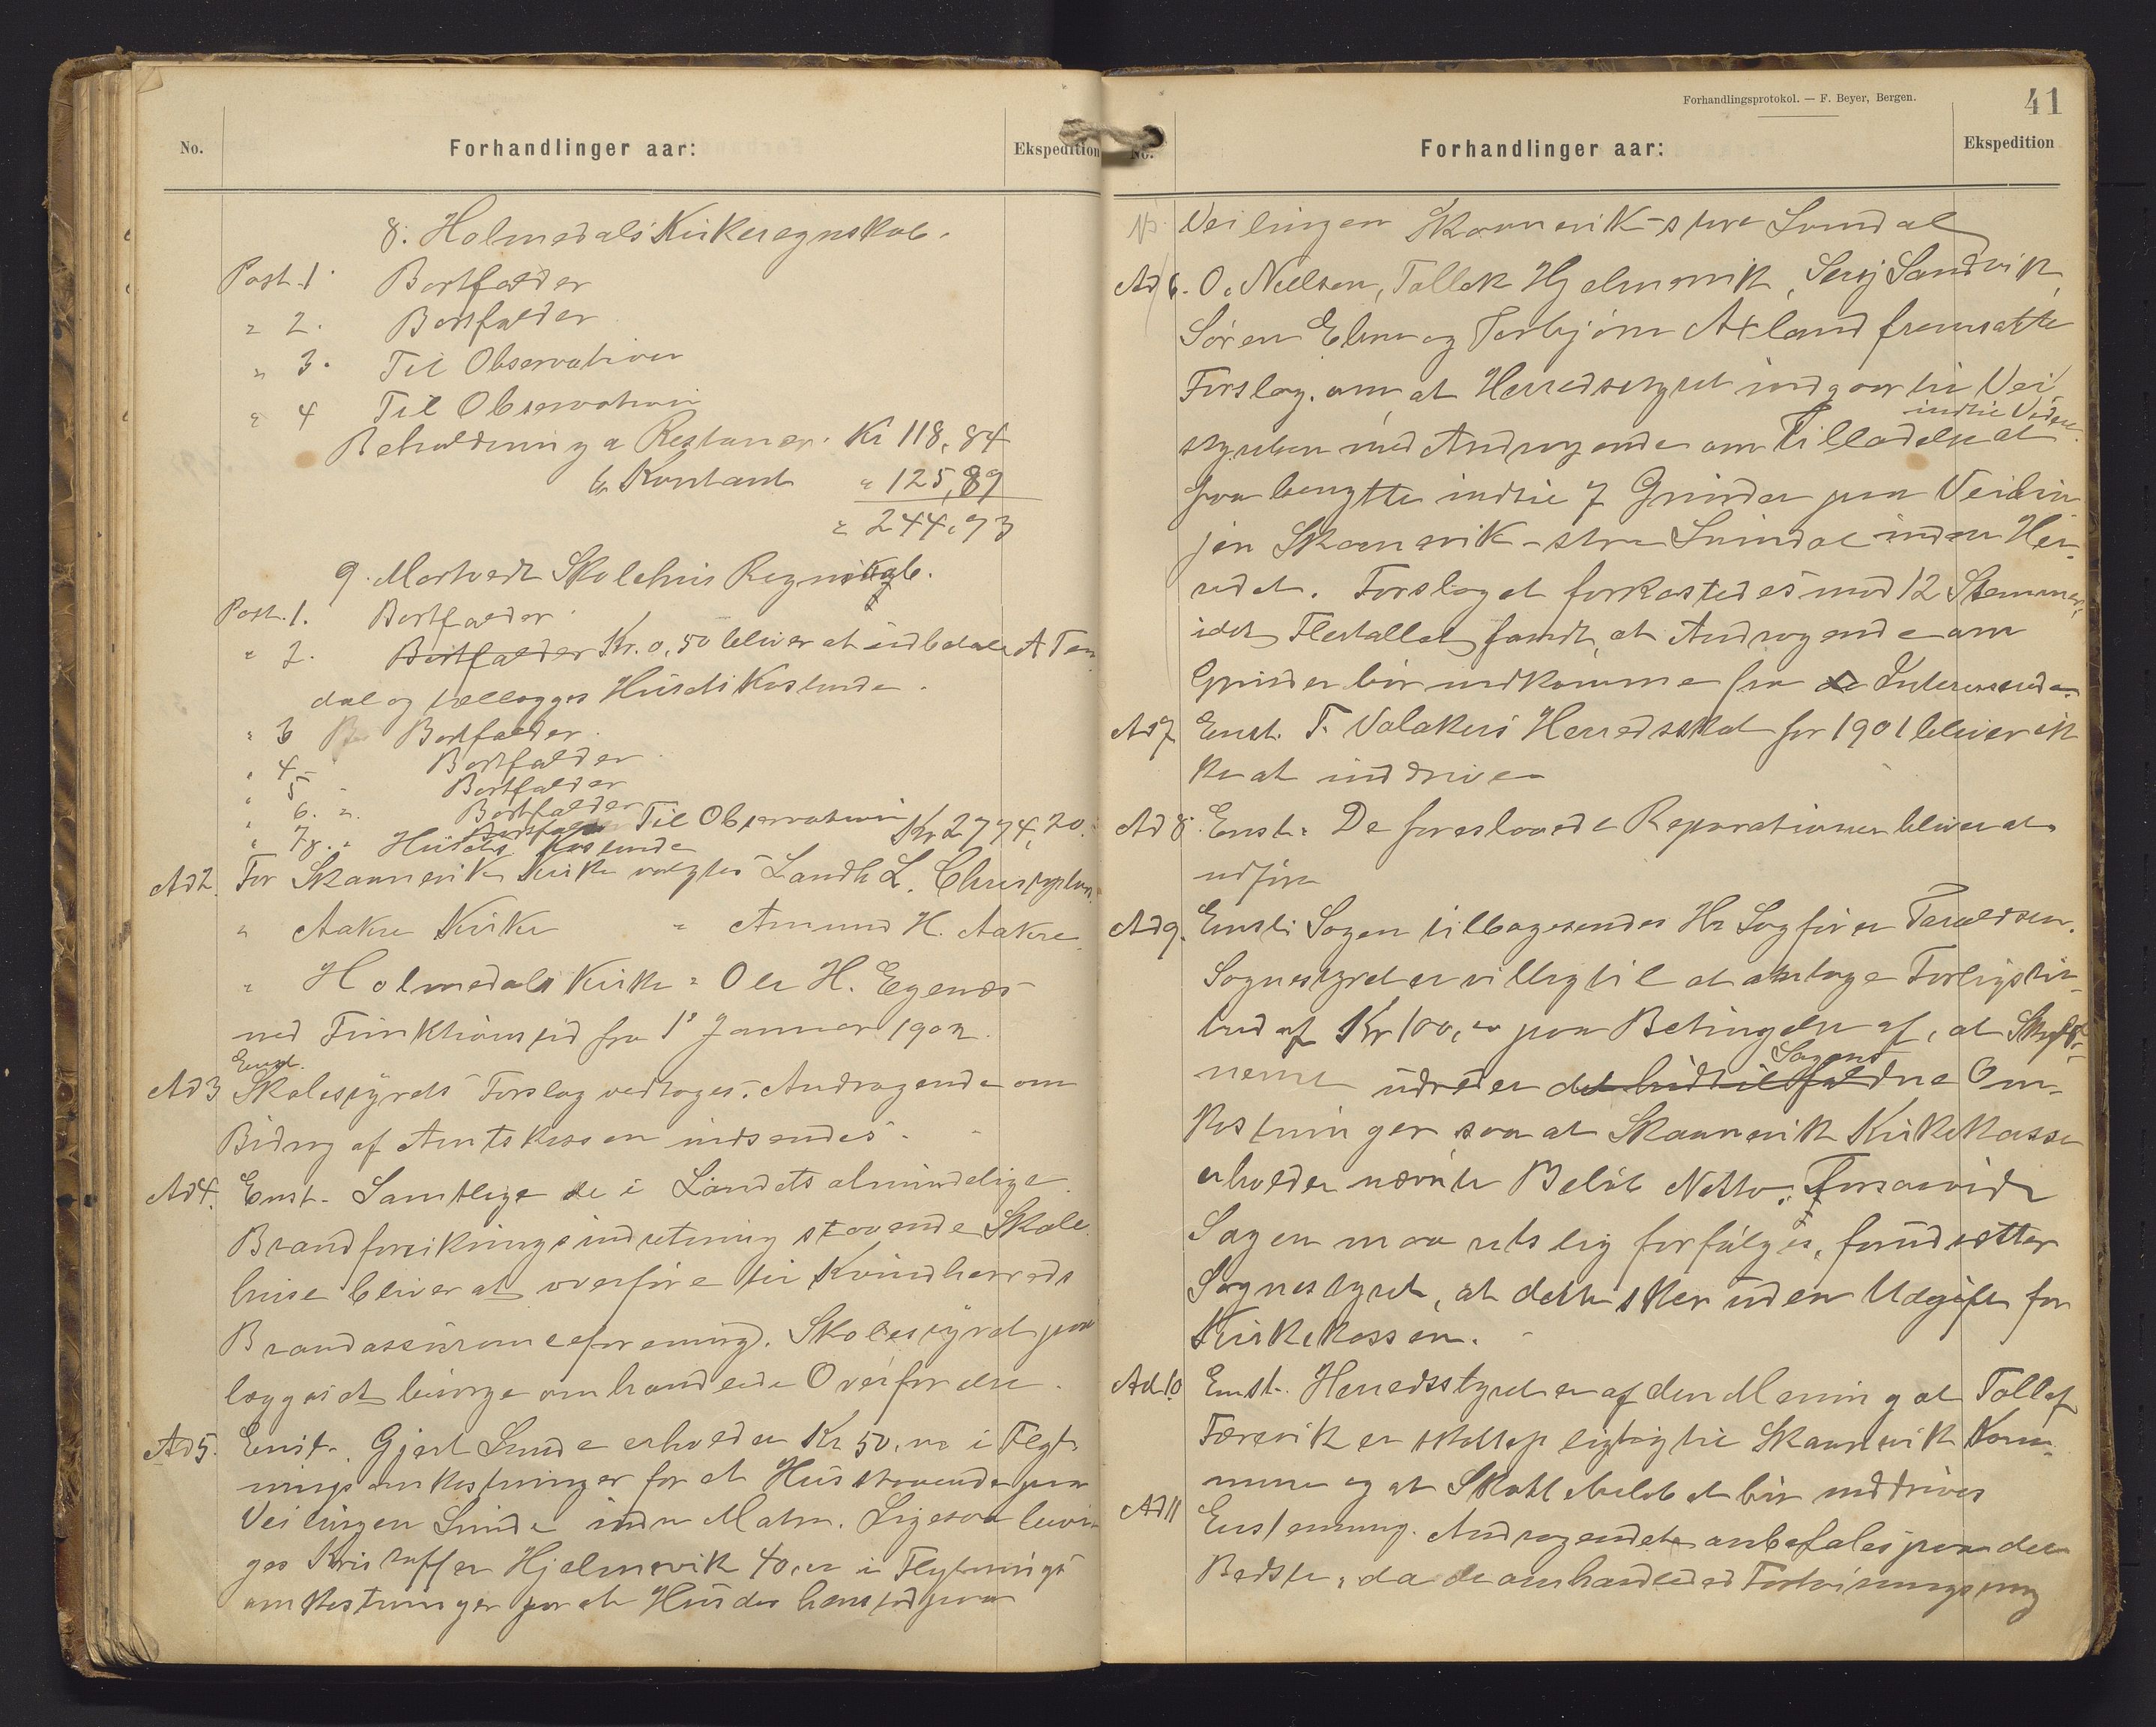 No.
Forhandlinger aar:
Ekspedition
8. Holmedals Kirkeregnskab.
Post. 1 Bortfalder
" 2. Bortfalder
" 3. Til Observation
" 4 Til Observation
Beholdning a Restancer. Kr 118,84
b. Kontant " 125,89
" 244,73
9. Mortvedt Skolehus Regnskab.
Post. 1. Bortfalder
" 2. Bortfalder Kr. 0,50 bliver at indbetale A Ten
dal og tillægges Husets Kostende.
" 3 Bortfalder
" 4 - Bortfalder
" 5 - Bortfalder
" 6. " Bortfalder
" 7 Bortfalder Til Observation
" 8. " Husets Kostende Kr 2774,20.
Ad 2. For Skaanevik Kirke valgtes Landh. L. Christophers.
" Aakre Kirke " Amund H. Aakre
" Holmedals Kirke " Ole H. Egenæs
med Funktionstid fra 1ste Januar 1902.
Enst.
Ad 3 Skolestyrets Forslag vedtoges. Andragende om
Bidrag af Amtskassen indsendes.
Ad 4. Enst. Samtlige de i Landets almindelige
Brandforsikringsindretning staaende Skole
huse bliver at overføre til Kvindherreds
Brandassuranceforening. Skolestyret paa
lægges at besørge omhandlede Overførelse.
Ad 5. Enst. Gjert Sunde erholder Kr 50,00 i Flyt
ningsomkostninger for et Hus staaende paa
Veilinjen Sunde indre Matre. Ligesaa bevil
ges Kristoffer Hjelmevik 40,00 i Flytnings
omkostninger for et Hus der henstod paa
Forhandlingsprotokol. — F. Beyer, Bergen.
41
No.
Forhandlinger aar:
Ekspedition
Veilingen Skaanevik - stre Sundal
Ad 6. O. Nielsen, Tollek Hjelmevik, Serij Sandvik,
Søren Ebne og Torbjørn Axland fremsatte
Forslag om at Herredsstyret indgaar til Vei
indtil Videre
styrelsen med Andragende om Tilladelse at
faa benytte indtil 7 Grinder paa Veilin
jen Skaanevik - stre Sundal inden Her
redet. Forslaget forkastedes med 12 Stemmer,
idet Flertallet fandt, at Andragende om
Grinder bør indkomme fra de Interesserede
Ad 7 Enst. T. Valakers Herredsskat for 1901 bliver ik
ke at inddrive
Ad 8. Enst. De foreslaaede Reparationer bliver at
udføre
Ad 9. Enst. Sagen tilbagesendes Hr Sagfører Taraldsen.
Sognestyret er villig til at antage Forligstil
bud af Kr 100,00 paa Betingelse af, at
Sagens
udreder det hidtil faldne Om-
kostninger saa at Skaanevik Kirkekasse
erholder nævnte Beløb Netto. Forsaavidt
Sagen maa retslig forfølges, forudsætter
Sognestyret, at dette sker uden Udgift for
Kirkekassen.
Ad 10 Enst. Herredsstyret er af den Mening at Tollef
Færevik er skattepligtig til Skaanevik Kom-
mune og at Skattebeløbet bør inddrives
Ad 11 Enstemmig. Andragendet anbefales paa det
Bedste, da de omhandlede